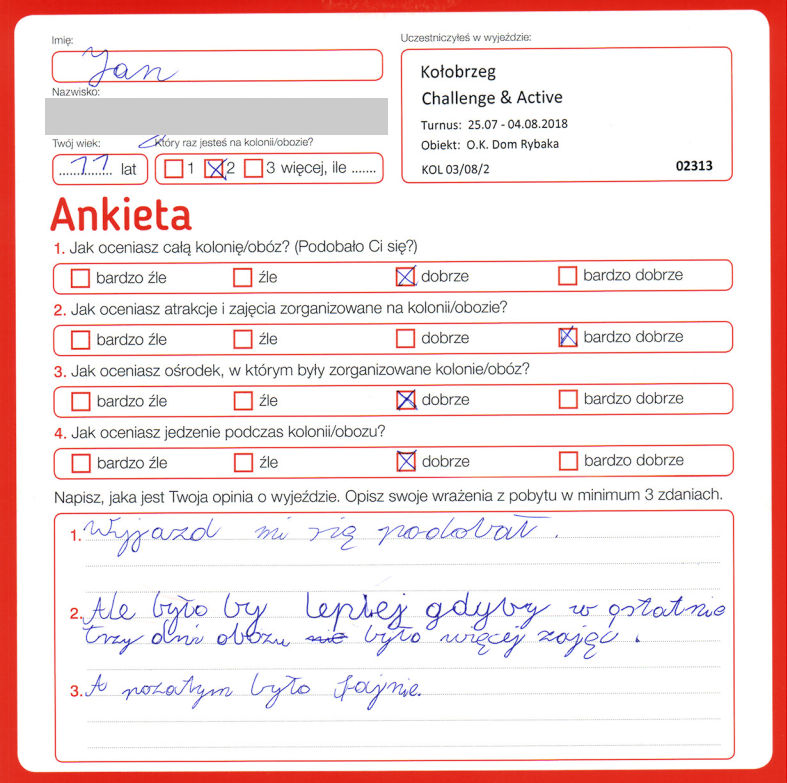 Imię:
Jan
Nazwisko:
Twój wiek:
11 lat
Który raz jesteś na kolonii/obozie?
1 2 3 więcej, ile .......
Uczestniczyłeś w wyjeździe:
Kołobrzeg
Challenge & Active
Turnus: 25.07 - 04.08.2018
Obiekt: O.K. Dom Rybaka
KOL 03/08/2 02313
Ankieta
1. Jak oceniasz całą kolonię/obóz? (Podobało Ci się?)
bardzo źle źle dobrze bardzo dobrze
2. Jak oceniasz atrakcje i zajęcia zorganizowane na kolonii/obozie?
bardzo źle źle dobrze bardzo dobrze
3. Jak oceniasz ośrodek, w którym były zorganizowane kolonie/obóz?
bardzo źle źle dobrze bardzo dobrze
4. Jak oceniasz jedzenie podczas kolonii/obozu?
bardzo źle źle dobrze bardzo dobrze
Napisz, jaka jest Twoja opinia o wyjeździe. Opisz swoje wrażenia z pobytu w minimum 3 zdaniach.
1. Wyjazd mi się podobał.
2. Ale było by lepiej gdyby w ostatnie
trzy dni obozu nie było więcej zajęć.
3. A pozatym było fajnie.